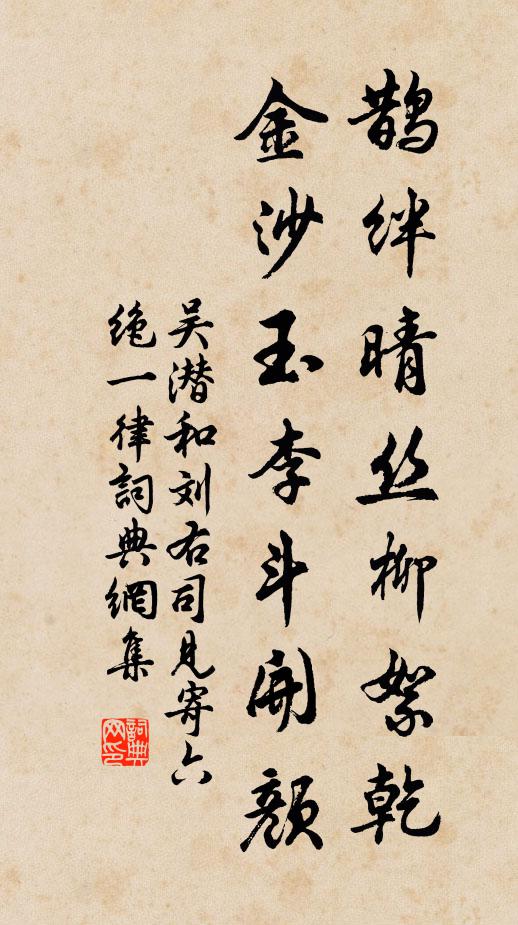 鹊绊晴丝柳絮乾
金沙玉李斗開颜
吴潜和刘右司見寄六
绝一律詞典網集
詞典网印